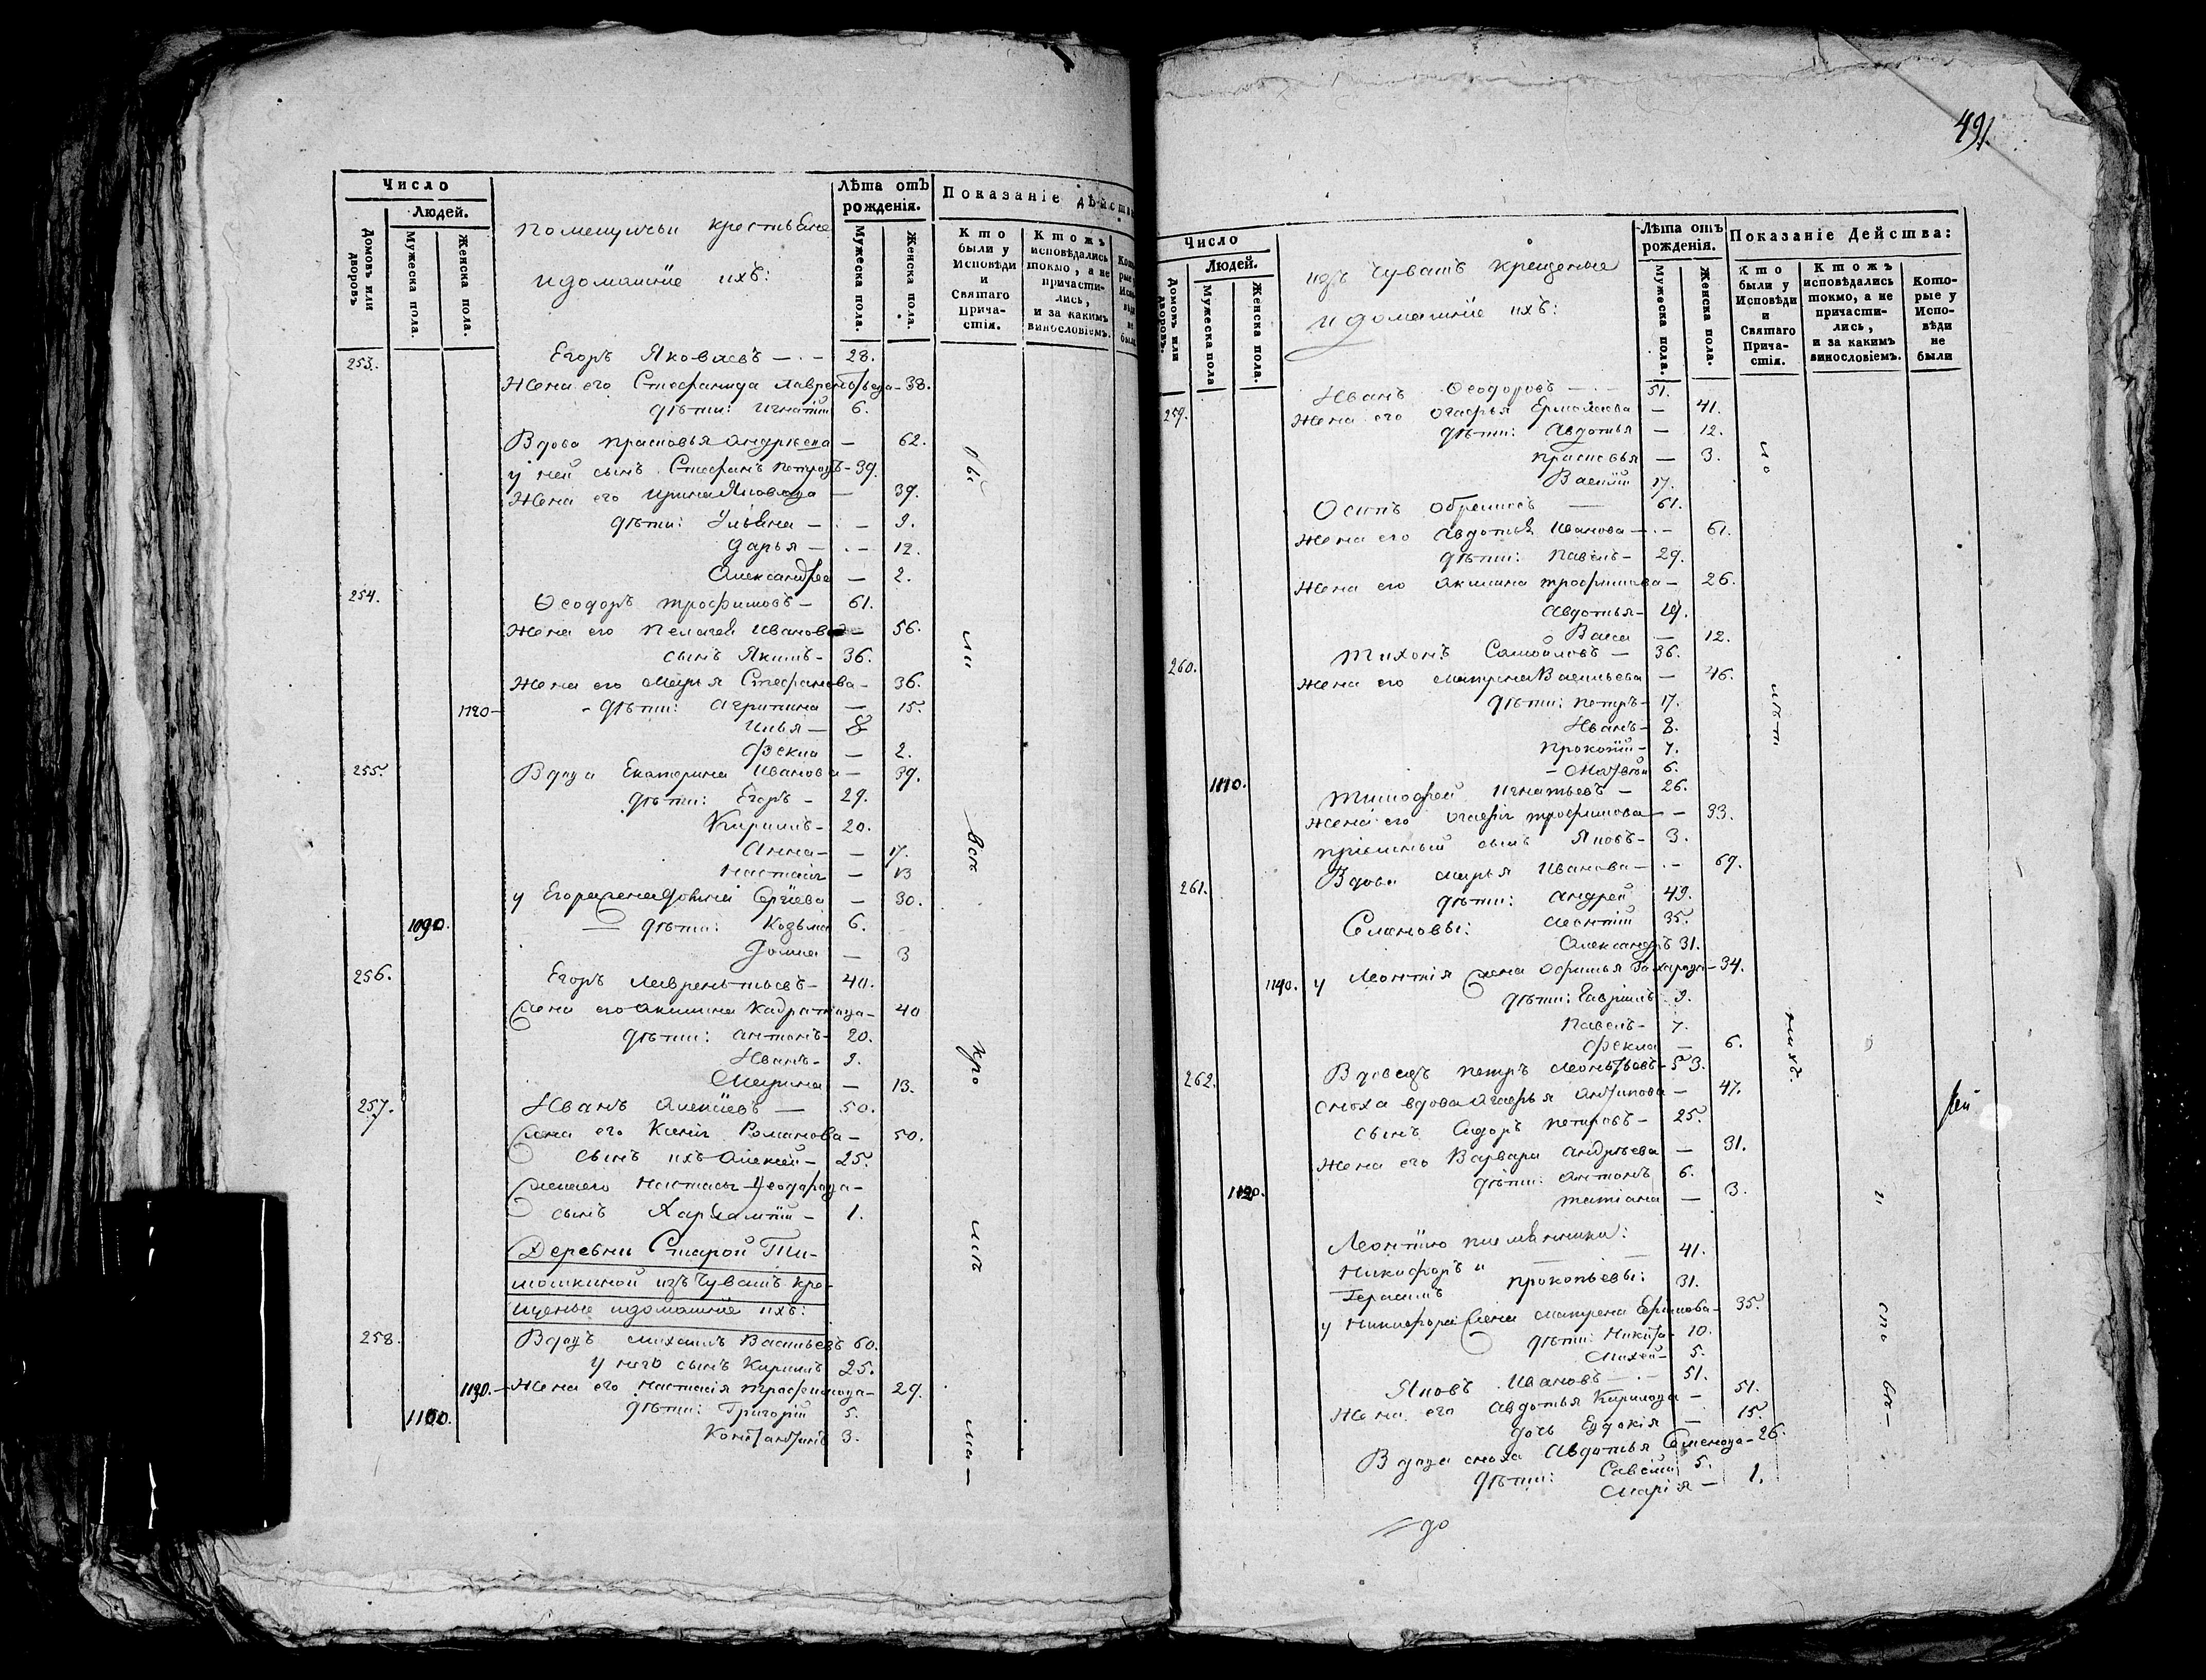 Число
Людей.
Домовъ или дворовъ.
Мужеска пола.
Женска пола.
помещичьи крестьяне
и домашніе ихъ:
Лѣта отъ рожденія.
Мужеска пола.
Женска пола.
Показаніе дѣйства
Кто были у Исповѣди и Святаго Причастія.
Ктожъ исповѣдались токмо, а не причастились, и за какимъ винословіемъ.
253. Егоръ Яковлевъ — 28.
Жена его Стефанида Лаврентьева — 38.
дѣти: Игнатій 6.
Вдова Прасковья Андреева — 62.
у ней сынъ Стефанъ Петровъ — 39.
Жена его Ирина Яковлева — 39.
дѣти: Ульяна — 9.
Дарья — 12.
Александра — 2.
254. Ѳеодоръ Трофимовъ — 61.
Жена его Пелагея Иванова — 56.
сынъ Якимъ — 36.
Жена его Марья Стефанова — 36.
1120 — дѣти: Агрипина — 15.
Илья — 8
Фекла — 2.
255. Вдова Екатерина Иванова — 39.
дѣти: Егоръ — 29.
Кирилъ — 20.
Анна — 17.
Настасія — 13
у Егора жена Сергіева — 30.
1090. дѣти: Козьма 6.
Домна — 3
256. Егоръ Лаврентьевъ — 40.
жена его Акилина — 40
дѣти: Антонъ — 20.
Иванъ — 9.
Марина — 13.
257. Иванъ Алексѣевъ — 50.
жена его Ксенія Романова — 50.
сынъ ихъ Алексѣй — 25.
жена его Настасья Ѳеодорова —
сынъ Харлампій — 1.
Деревни Старой Ти-
мошкиной изъ Чувашъ кре-
щеные и домашніе ихъ:
258. Вдовъ Михаилъ Васильевъ 60.
у него сынъ Кирилъ 25.
1130. — Жена его Настасія Трофимова — 29.
1100. дѣти: Григорій 5.
Константинъ 3.
491.
Число
Людей.
Домовъ или дворовъ.
Мужеска пола
Женска пола.
изъ Чувашъ крещеные
и домашніе ихъ:
Лѣта отъ рожденія.
Мужеска пола.
Женска пола.
Показаніе Дѣйства:
Кто были у Исповѣди и Святаго Причастія.
Ктожъ исповѣдались токмо, а не причастились, и за какимъ винословіемъ.
Которые у Исповѣди не были
259. Иванъ Ѳеодоровъ — 51.
Жена его Агафья Ермолаева — 41.
дѣти: Авдотья — 12.
Прасковья — 3.
Василій 17.
Осипъ 61.
Жена его Авдотья Иванова — 61.
дѣти: Павелъ — 29.
Жена его Акилина Трофимова — 26.
Авдотья — 19.
Васса — 12.
260. Тихонъ Самойловъ — 36.
Жена его Матрена Васильева — 46.
дѣти: Петръ — 17.
Иванъ — 8.
Прокопій — 7.
Матвей 6.
1110. Тимофей Игнатьевъ — 26.
Жена его Трофимова — 33.
пріемный сынъ Яковъ — 3.
261. Вдова Марья Иванова — 69.
дѣти: Андрей 49.
Леонтій 35.
Александръ 31.
1140. у Леонтія жена Офимья Захарова — 34.
дѣти: Гавріилъ 9.
Павелъ — 7.
Фекла — 6.
262. Вдовецъ Петръ Леонтьевъ — 53.
сноха вдова Агафья Антипова — 47.
сынъ Сидоръ Петровъ — 25.
Жена его Варвара Андрѣева — 31.
дѣти: Антонъ 6.
1120. Татіана — 3.
Леонтію племянники:
Никифоръ и 41.
Герасимъ Прокопьевы: 31.
у Никифора жена Матрена — 35.
дѣти: Никита — 10.
Михей — 5.
Яковъ Ивановъ — 51.
Жена его Авдотья Кирилова — 51.
дочь Евдокія — 15.
Вдова сноха Авдотья Семенова — 26.
дѣти: Савелій 5.
Марія — 1.